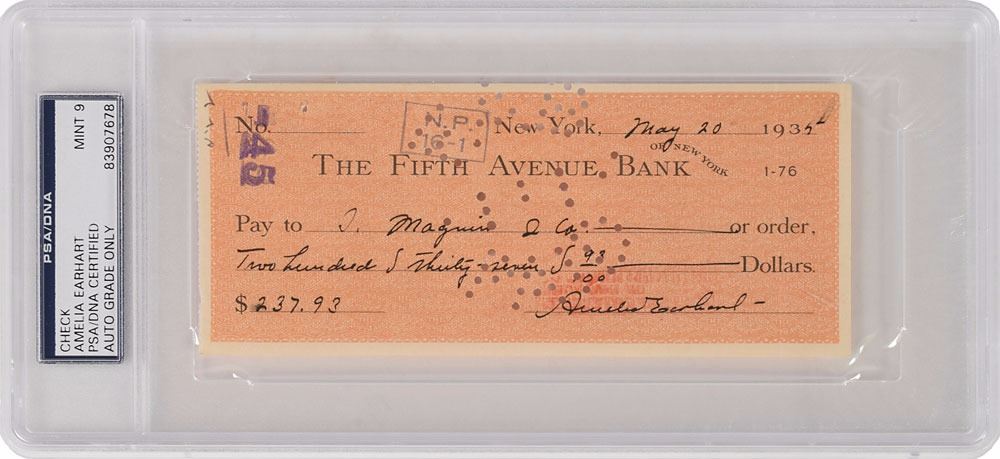 PSA/DNA
CHECK MINT 9
AMELIA EARHART
PSA/DNA CERTIFIED
AUTO GRADE ONLY 83907678
No.
-45
N.P.
16-1
New York, May 20 1935
THE FIFTH AVENUE BANK OF NEW YORK 1-76
Pay to I. Magnin & Co. or order,
Two hundred & thirty-seven & 93/100 Dollars.
$237.93
Amelia Earhart